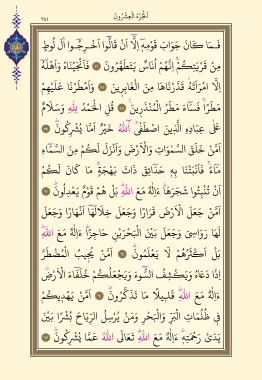 الجزء العشرون
٣٨١
فَمَا كَانَ جَوَابَ قَوْمِهِ إِلَّا أَنْ قَالُوا أَخْرِجُوا آلَ لُوطٍ
مِنْ قَرْيَتِكُمْ إِنَّهُمْ أُنَاسٌ يَتَطَهَّرُونَ فَأَنْجَيْنَاهُ وَأَهْلَهُ
إِلَّا امْرَأَتَهُ قَدَّرْنَاهَا مِنَ الْغَابِرِينَ وَأَمْطَرْنَا عَلَيْهِمْ
مَطَرًا فَسَاءَ مَطَرُ الْمُنْذَرِينَ قُلِ الْحَمْدُ لِلَّهِ وَسَلَامٌ
عَلَى عِبَادِهِ الَّذِينَ اصْطَفَى آللَّهُ خَيْرٌ أَمَّا يُشْرِكُونَ
أَمَّنْ خَلَقَ السَّمٰوَاتِ وَالْأَرْضَ وَأَنْزَلَ لَكُمْ مِنَ السَّمَاءِ
مَاءً فَأَنْبَتْنَا بِهِ حَدَائِقَ ذَاتَ بَهْجَةٍ مَا كَانَ لَكُمْ
أَنْ تُنْبِتُوا شَجَرَهَا ءَإِلٰهٌ مَعَ اللَّهِ بَلْ هُمْ قَوْمٌ يَعْدِلُونَ
أَمَّنْ جَعَلَ الْأَرْضَ قَرَارًا وَجَعَلَ خِلَالَهَا أَنْهَارًا وَجَعَلَ
لَهَا رَوَاسِيَ وَجَعَلَ بَيْنَ الْبَحْرَيْنِ حَاجِزًا ءَإِلٰهٌ مَعَ اللَّهِ
بَلْ أَكْثَرُهُمْ لَا يَعْلَمُونَ أَمَّنْ يُجِيبُ الْمُضْطَرَّ
إِذَا دَعَاهُ وَيَكْشِفُ السُّوءَ وَيَجْعَلُكُمْ خُلَفَاءَ الْأَرْضِ
ءَإِلٰهٌ مَعَ اللَّهِ قَلِيلًا مَا تَذَكَّرُونَ أَمَّنْ يَهْدِيكُمْ
فِي ظُلُمَاتِ الْبَرِّ وَالْبَحْرِ وَمَنْ يُرْسِلُ الرِّيَاحَ بُشْرًا بَيْنَ
يَدَيْ رَحْمَتِهِ ءَإِلٰهٌ مَعَ اللَّهِ تَعَالَى اللَّهُ عَمَّا يُشْرِكُونَ